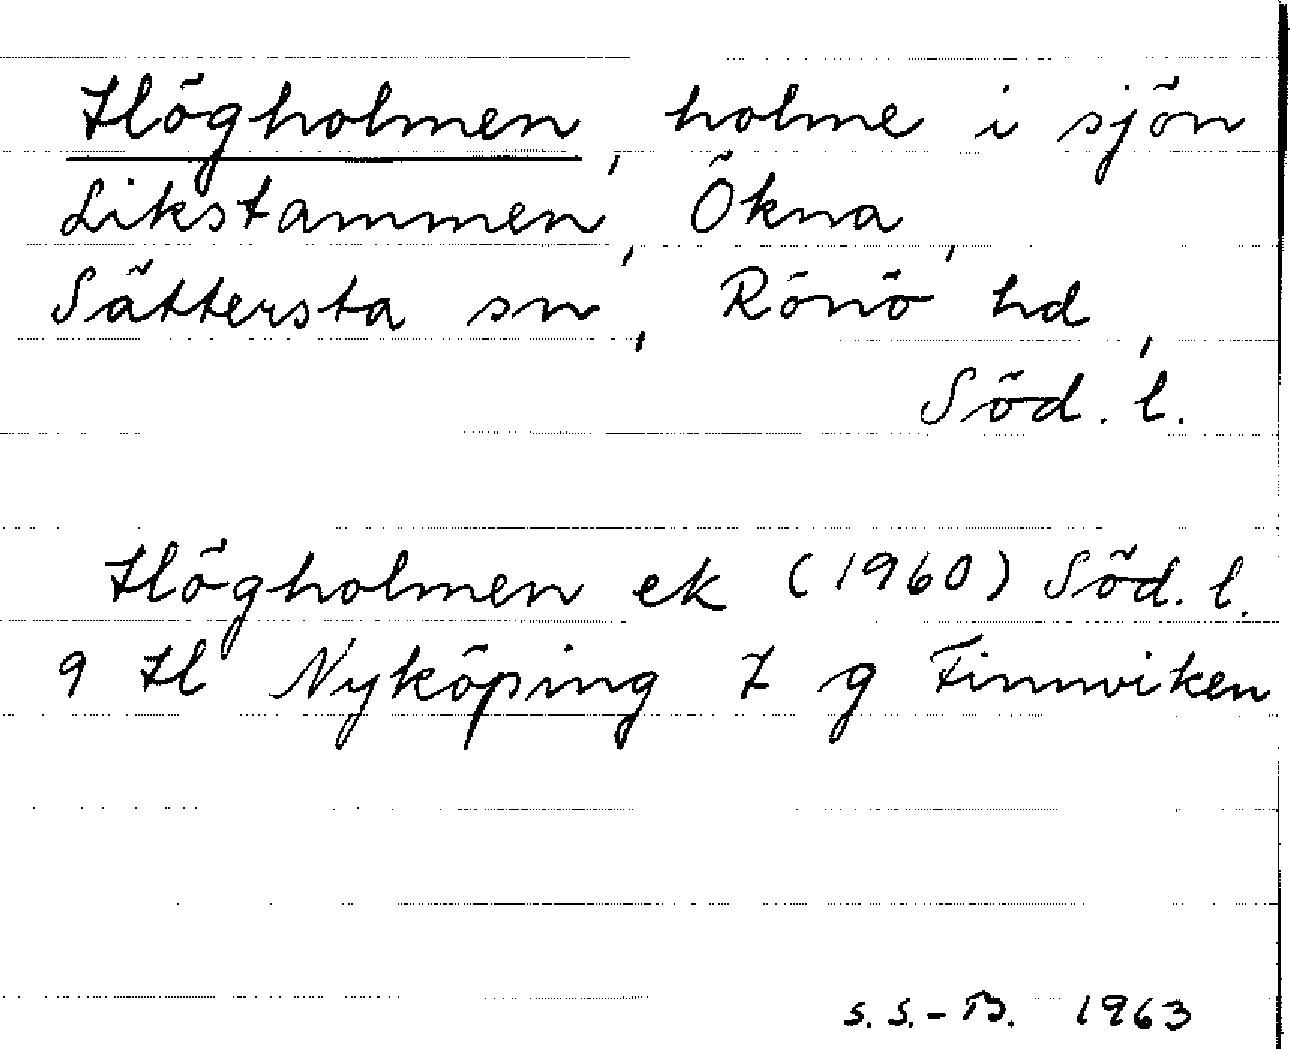 Högholmen, holme i sjön
Likstammen, Ökna,
Sättersta sn, Rönö hd,
Söd. l.
Högholmen ek (1960) Söd. l.
9 H Nyköping 7 g Finnviken
S. S.-B. 1963